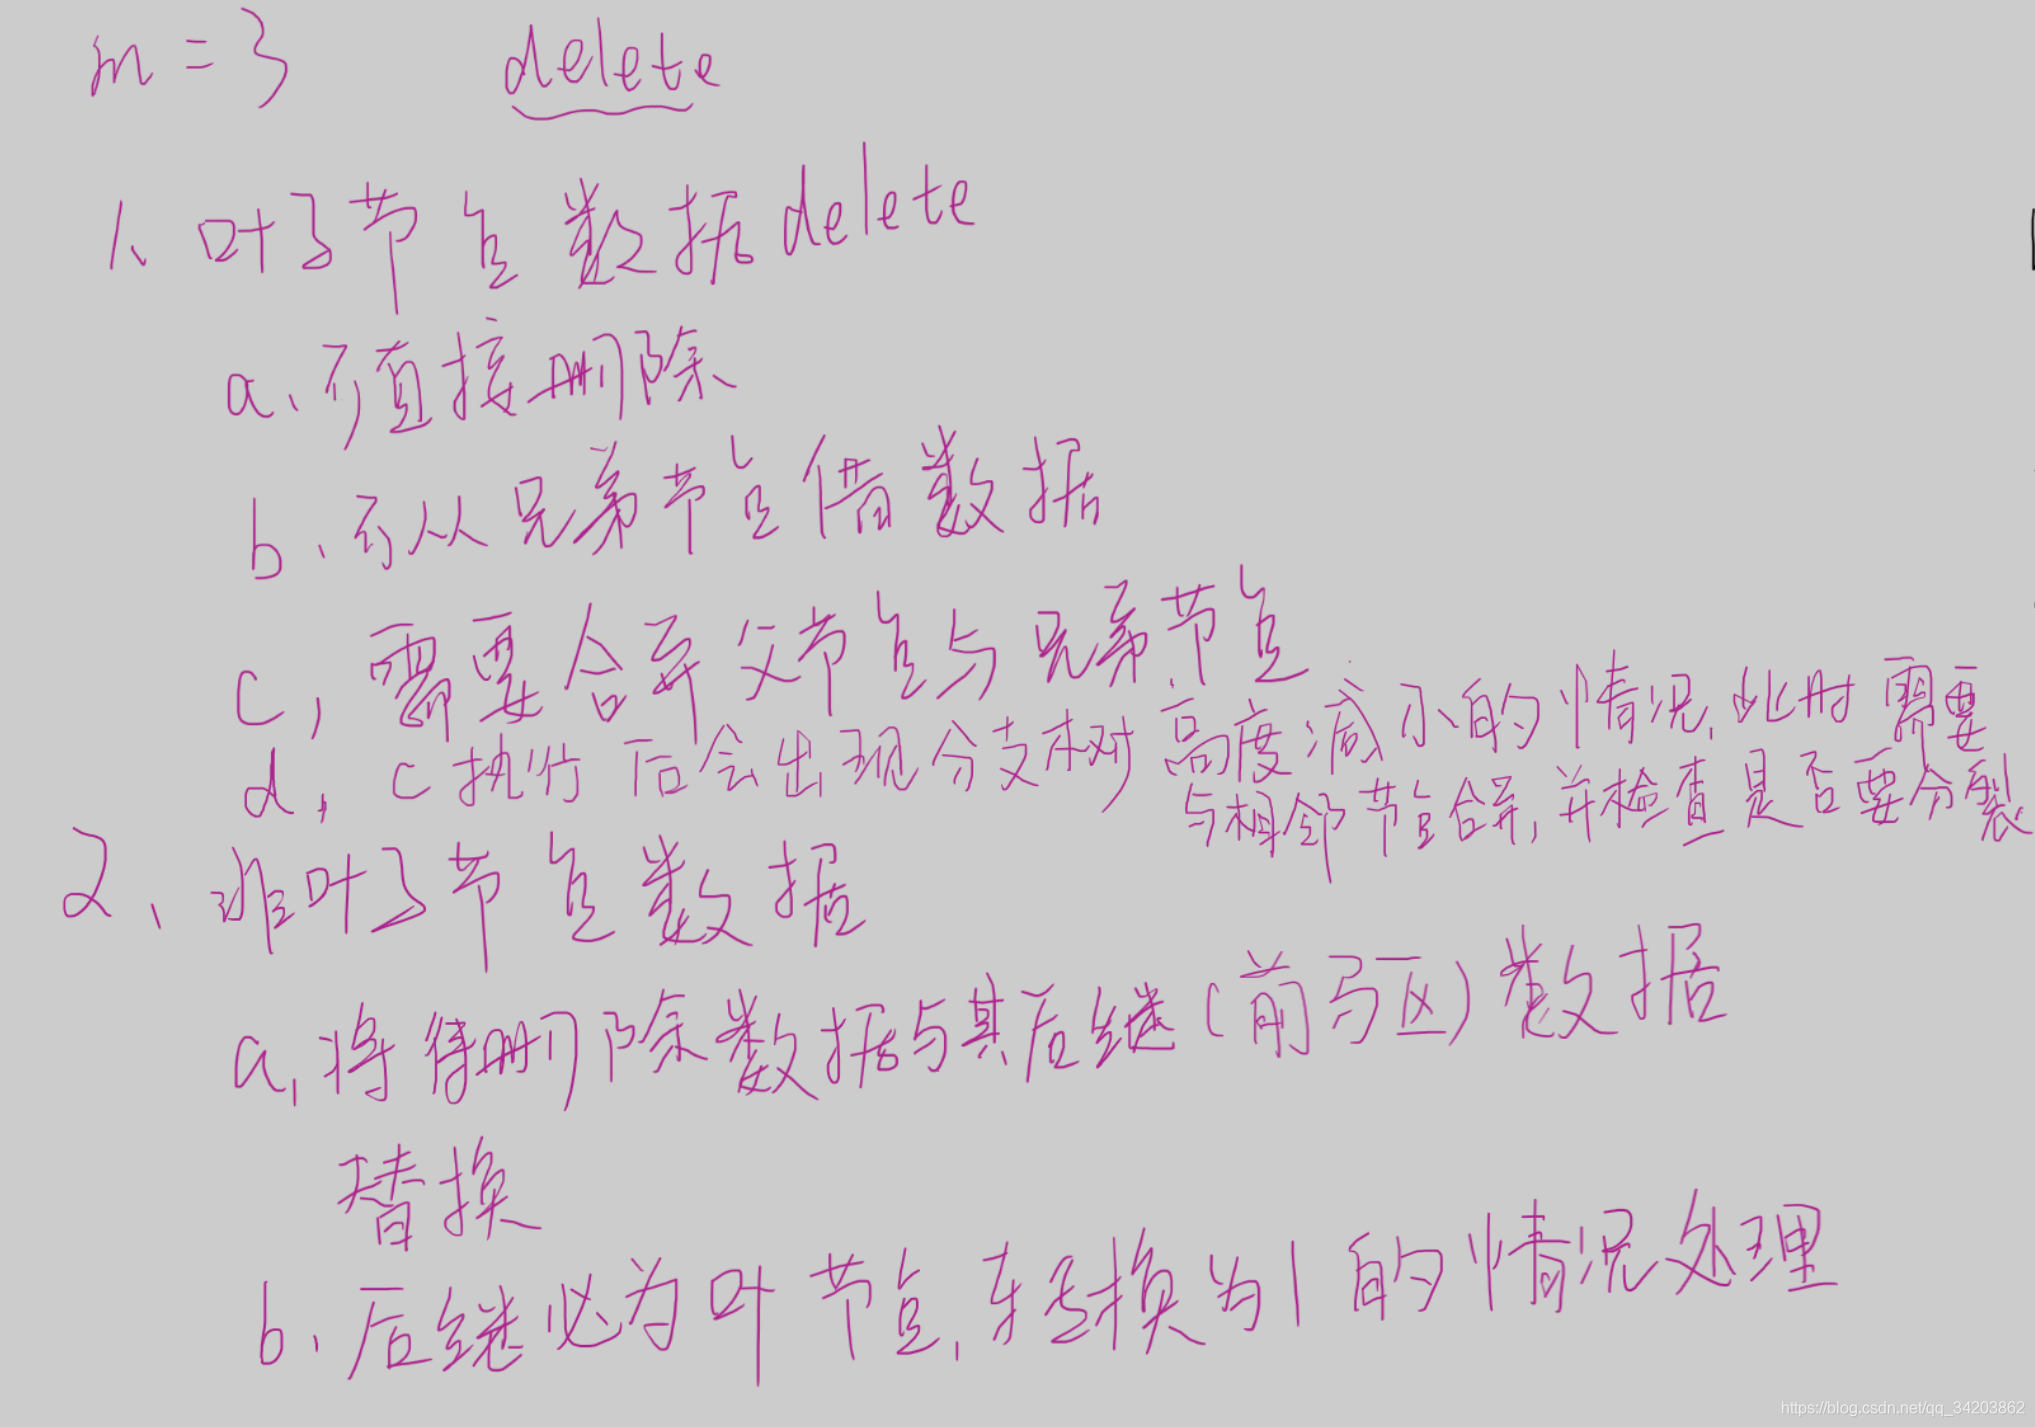 m = 3 delete
1、叶子节点数据delete
a、可直接删除
b、可从兄弟节点借数据
c，需要合并父节点与兄弟节点
d，c执行后会出现分支树高度减小的情况，此时需要
与相邻节点合并，并检查是否要分裂
2、非叶子节点数据
a，将待删除数据与其后继（前驱）数据
替换
b、后继必为叶节点，转换为1的情况处理
https://blog.csdn.net/qq_34203862